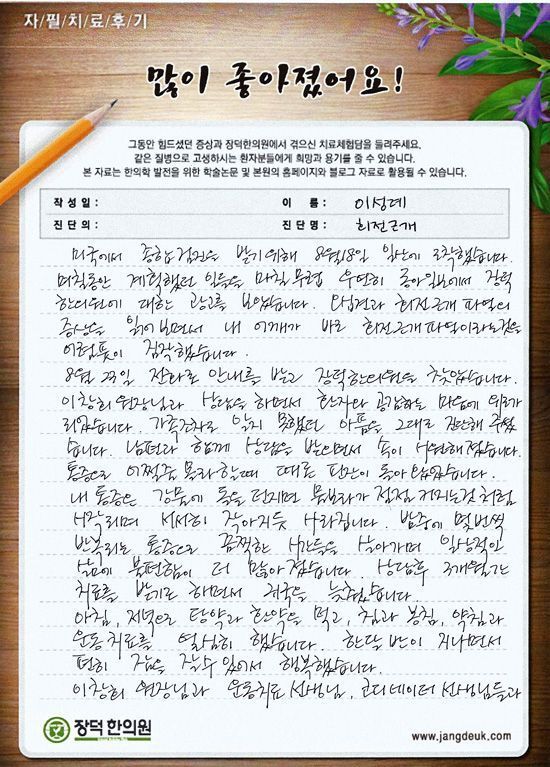 자/필/치/료/후/기
많이 좋아졌어요!
그동안 힘드셨던 증상과 장덕한의원에서 겪으신 치료체험담을 들려주세요.
같은 질병으로 고생하시는 환자분들에게 희망과 용기를 줄 수 있습니다.
본 자료는 한의학 발전을 위한 학술논문 및 본원의 홈페이지와 블로그 자료로 활용될 수 있습니다.
작 성 일 : 이 름 : 이성례
진 단 의 : 진 단 명 : 회전근개
미국에서 종합검진을 받기위해 8월18일 일산에 도착했습니다.
며칠동안 계획했던 일들을 마칠무렵 우연히 중앙일보에서 장덕
한의원에 대한 광고를 보았습니다. 오십견과 회전근개 파열의
증상을 읽어보면서 내 어깨가 바로 회전근개파열이라는것을
어렴풋이 짐작했습니다.
8월 23일 전화로 안내를 받고 장덕한의원을 찾았습니다.
이창희원장님과 상담을 하면서 환자와 공감하는 마음에 위로가
되었습니다. 가족조차도 믿지 못했던 아픔을 그대로 진단해 주셨
습니다. 남편과 함께 상담을 받으면서 속이 시원해졌습니다.
통증으로 어쩔줄 몰라할때 때론 핀잔이 돌아왔었습니다.
내 통증은 강물에 돌을 던지면 물보라가 점점 커지는것처럼
시작되며 서서히 작아지듯 사라집니다. 밤중에 몇번씩
반복되는 통증으로 끔찍한 시간들을 살아가며 일상적인
삶에 불편함이 더 많아졌습니다. 상담후 3개월간
치료를 받기로 하면서 귀국을 늦췄습니다.
아침, 저녁으로 탕약과 한약을 먹고, 침과 봉침, 약침과
운동치료를 열심히 했습니다. 한달 반이 지나면서
편히 잠을 잘수 있어서 행복했습니다.
이창희 원장님과 운동치료 선생님, 코디네이터 선생님들과
장덕한의원
www.jangdeuk.com